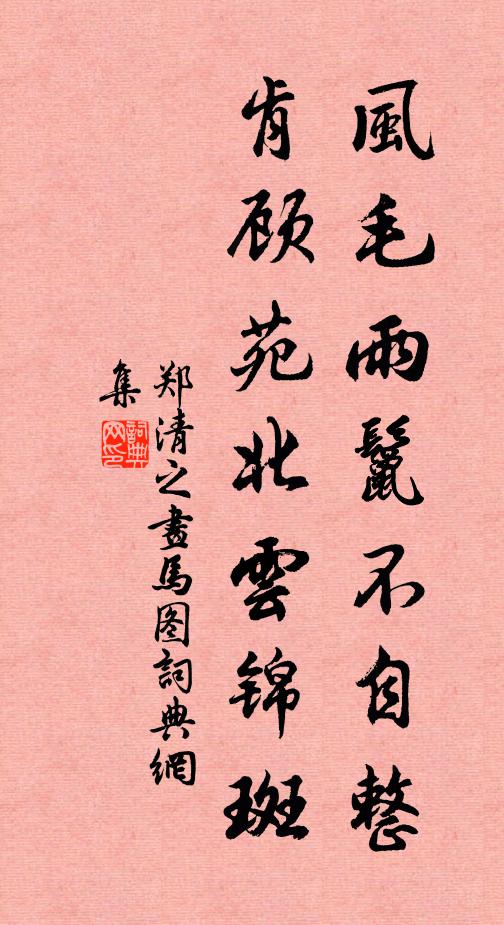 風毛雨鬣不自整
肯顾苑北雲锦斑
郑清之畫馬图詞典網
集
詞典
网印